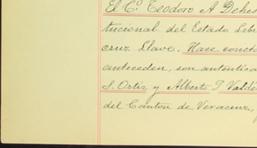 El C. Teodoro A. Dehesa
tucional del Estado Libre
cruz Llave. Hace constar
anteceden, son auténticas
S. Ortiz y Alberto J. Valde
del Cantón de Veracruz,